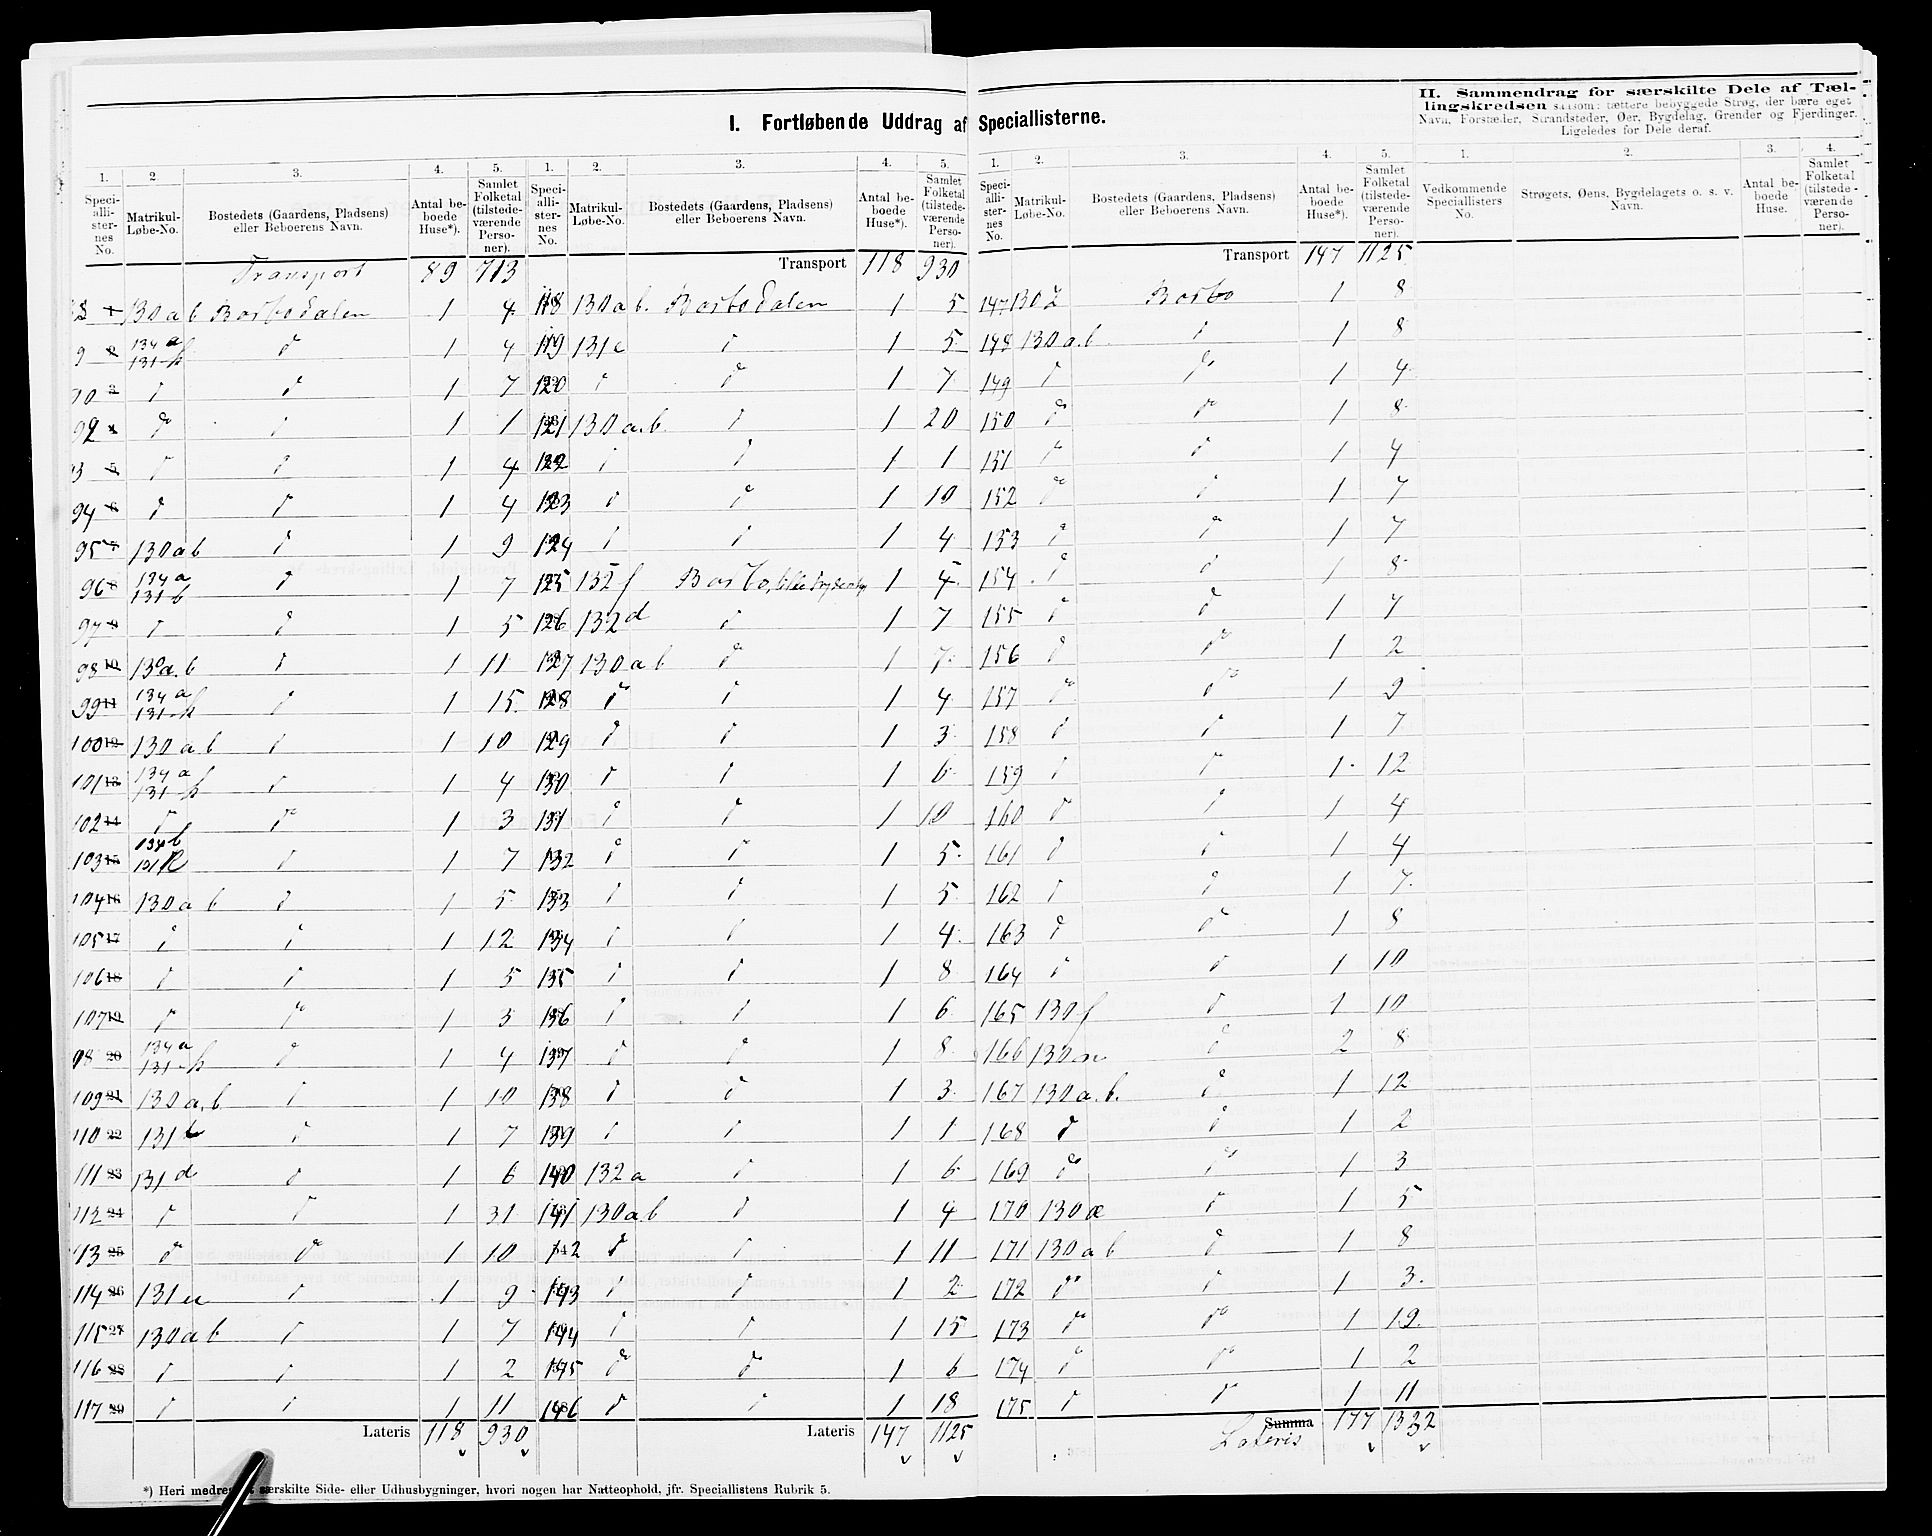 I. Fortløbende Uddrag af Speciallisterne.
II. Sammendrag for særskilte Dele af Tæl-
lingskredsen saasom: tættere bebyggede Strøg, der bære eget
Navn, Forstæder, Strandsteder, Øer, Bygdelag, Grender og Fjerdinger.
Ligeledes for Dele deraf.
1. 2 3. 4. 5. 1. 2. 3. 4. 5. 1. 2. 3. 4. 5. 1. 2. 3. 4.
Speci-alli-ster-nes No. Matrikul-Løbe-No. Bostedets (Gaardens, Pladsens) eller Beboerens Navn. Antal be-boede Huse*). Samlet Folketal (tilstede-værende Perso-ner).
Speci-alli-ster-nes No. Matrikul-Løbe-No. Bostedets (Gaardens, Pladsens) eller Beboerens Navn. Antal be-boede Huse*). Samlet Folketal (tilstede-værende Perso-ner).
Speci-alli-ster-nes No. Matrikul-Løbe-No. Bostedets (Gaardens, Pladsens) eller Beboerens Navn. Antal be-boede Huse*). Samlet Folketal (tilstede-værende Perso-ner).
Vedkommende Speciallisters No. Strøgets, Øens, Bygdelagets o. s. v. Navn. Antal be-boede Huse. Samlet Folketal (tilstede-værende Perso-ner).
Transport 89 713
130 a b Barbodalen 1 4
134 a 131 h d 1 4
d d 1 7
92 d d 1 1
d d 1 4
94 d d 1 4
95 130 a b d 1 9
96 134 a 131 b d 1 7
97 d d 1 5
98 130 a.b d 1 11
99 134 a 131 h d 1 15
100 130 a.b d 1 10
101 134 a 131 h d 1 4
102 d do 1 3
103 134 b d 1 7
104 130 a b d 1 5
105 d d 1 12
106 d d 1 5
107 d do 1 3
134 a 131 h d 1 4
109 130 a.b d 1 10
110 131 d 1 7
111 131 d d 1 6
112 d d 1 31
do do 1 10
114 131 d 1 9
115 130 a b d 1 7
116 d d 1 2
117 d d 1 11
Lateris 118 930
Transport 118 930
118 130 a b. Barbodalen 1 5
119 131 c d 1 5
120 d d 1 7
121 130 a.b. d 1 20
122 d d 1 1
123 d d 1 10
124 d d 1 4
125 132 f Barbo, 1
126 132 d d 1 7
127 130 a b d 1 7
128 d d 1 4
129 d d 1 3
130 d d 1 6
131 d d 1 10
132 d d 1 5
133 d d 1 5
134 d d 1 4
135 d d 1 8
136 d d 1 6
137 d d 1 8
138 d d 1 3
139 d d 1 1
140 132 a d 1 6
141 130 a b d 1 4
142 d d 1 11
143 d d 1 2
144 d d 1 15
145 do do 1 6
146 d d 1 18
Lateris 147 1125
Transport 147 1125
147 130 Barbo 1 8
148 130 a.b. d 1 8
149 d do 1 4
150 do do 1 8
151 do d 1 4
152 do d 1 7
153 d d 1 7
154 d d 1 8
155 d d 1
156 d do 1 2
157 do do 1 9
158 d d 1 7
159 d do 1 12
160 d d 1 4
161 d d 1 4
162 d d 1 7
163 d do 1 8
164 d d 1 10
165 130 f d 1 10
166 130 n d 2 8
167 130 a.b. d 1 12
168 d d 1 2
169 do do 1 3
170 130 æ d 1 5
171 130 a b d 1 8
172 do d 1 3
173 do do 1 19
174 d do 1 2
175 d do 1 11
Summa Lateris 177 1332
*) Heri medregnet særskilte Side- eller Udhusbygninger, hvori nogen har Natteophold, jfr. Speciallistens Rubrik 5.